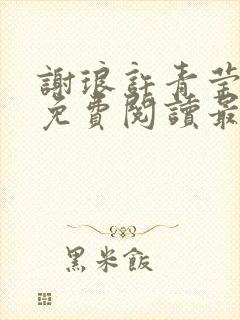 謝琅許青莹
免費閱讀最
黑米飯